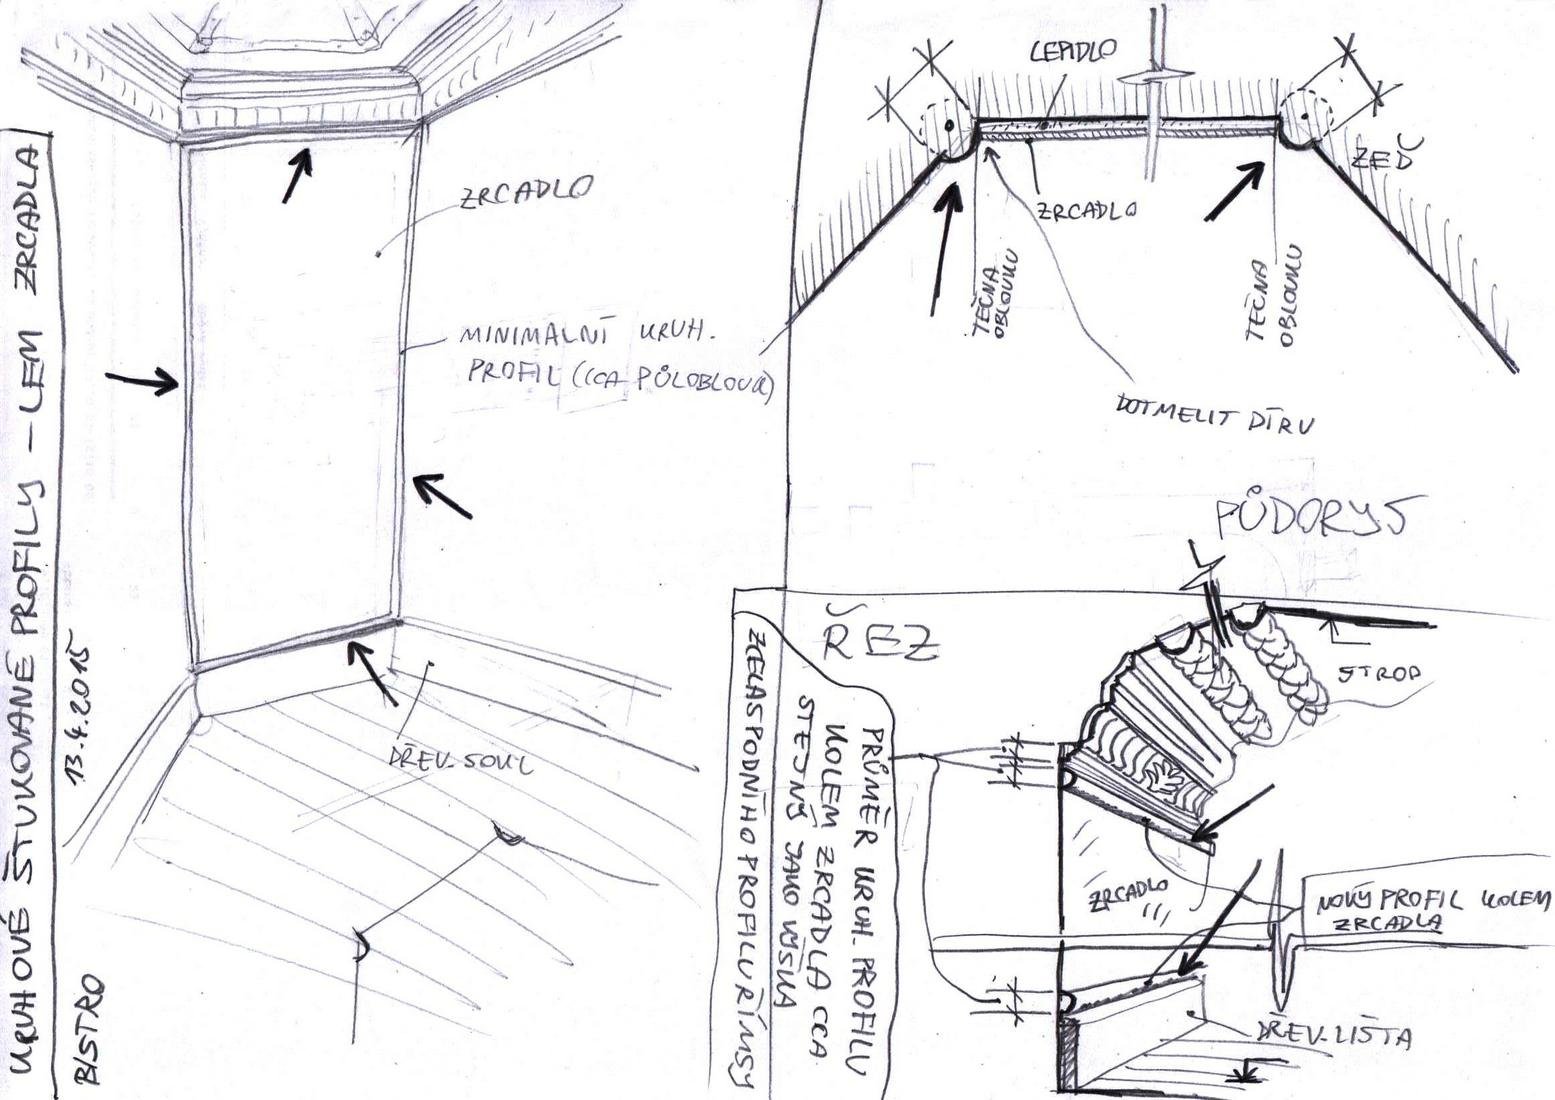 KRUHOVÉ ŠTUKOVANÉ PROFILY – LEM ZRCADLA
BISTRO 13.4.2015
ZRCADLO
MINIMÁLNÍ KRUH.
PROFIL (CCA PŮLOBLOUK)
DŘEV. SOKL
LEPIDLO
ZEĎ
ZRCADLO
TEČNA
OBLOUKU
TEČNA
OBLOUKU
DOTMELIT DÍRU
PŮDORYS
ŘEZ
STROP
PRŮMĚR KRUH. PROFILU
KOLEM ZRCADLA CCA
STEJNÝ JAKO VÝŠKA
ZCELA SPODNÍHO PROFILU ŘÍMSY
ZRCADLO
NOVÝ PROFIL KOLEM
ZRCADLA
DŘEV. LIŠTA